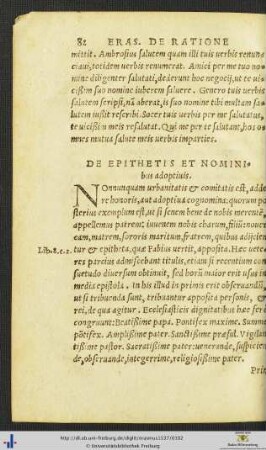 82 ERAS. DE RATIONE
mittit. Ambrosius salutem quam illi tuis verbis renun
ciaui, totidem verbis renunciat. Amici per me tuo no=
mine diligenter salutati, dederunt hoc negotij, ut te ui
cissim suo nomine iuberem saluere. Genero tuis verbis
salutem scripsi, nā aberat, is suo nomine tibi multam sa=
lutem iussit rescribi. Socer tuis verbis per me salutatus,
te uicissim meis resalutat. Qui me per te salutant, hos o=
mneis mutua salute meis verbis impartics.
DE EPITHETIS ET NOMINI=
bus adoptiuis.
NOnnunquam urbanitatis & comitatis est, adde
re honoris, aut adoptiua cognomina: quorum po
sterius exemplum est, ut si senem bene de nobis meritū,
appellemus patrem, iuuenem nobis charum, filiū: nouer
cam, matrem, sororis maritum, fratrem, quibus adijciun
Lib.8.c.2. tur & epitheta, quæ Fabius uertit, apposita. Hæc uete=
res parcius admiscebant titulis, etiam si recentium con
suetudo diuersum obtinuit, sed horū maior erit usus in
media epistola. In his illud in primis erit obseruandū,
ut si tribuenda sunt, tribuantur apposita personis, &
rei, de qua agitur. Ecclesiasticis dignitatibus hæc ferè
congruunt: Beatissime papa. Pontifex maxime. Summe
pōtifex. Amplissime pater. Sanctissime præsul. Vigilan
tissime pastor. Sacratissime pater: uenerande, suspicien=
de, obseruande, integerrime, religiosissime pater.
Prin
http://dl.ub.uni-freiburg.de/diglit/erasmus1537/0102
© Universitätsbibliothek Freiburg
Baden-Württemberg